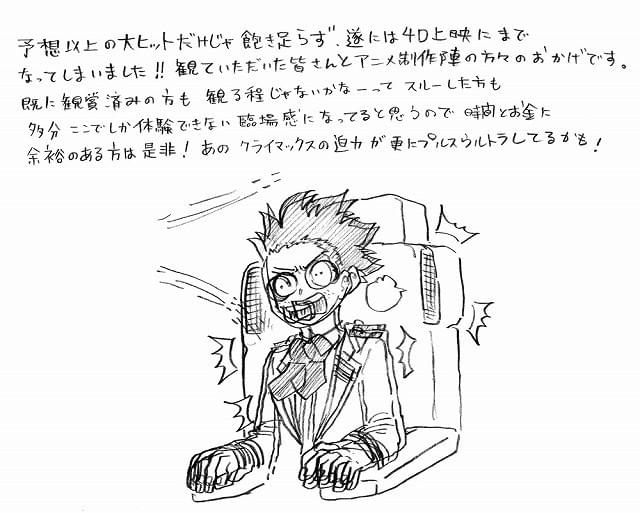 予想以上の大ヒットだけじゃ飽き足らず、遂には4D上映にまで
なってしまいました!!観ていただいた皆さんとアニメ制作陣の方々のおかげです。
既に観賞済みの方も 観る程じゃないかなーって スルーした方も
多分 ここでしか体験できない臨場感になってると思うので 時間とお金に
余裕のある方は是非! あの クライマックスの迫力が更にプルスウルトラしてるかも!